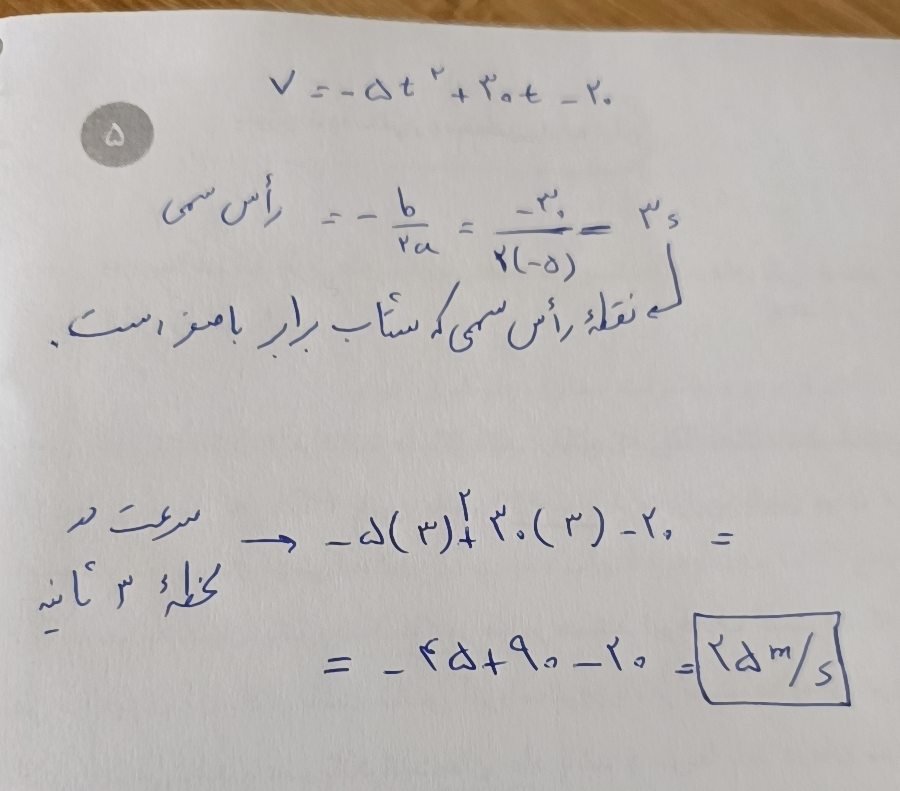 V = -۵t^۲ + ۳۰t - ۲۰
۵
رأس سهمی = - b/۲a = -۳۰/۲(-۵) = ۳s
نقطهٔ رأس سهمی که شتاب برابر با صفر است.
سرعت در لحظهٔ ۳ ثانیه → -۵(۳)^۲ + ۳۰(۳) - ۲۰ =
= -۴۵ + ۹۰ - ۲۰ = ۲۵ m/s